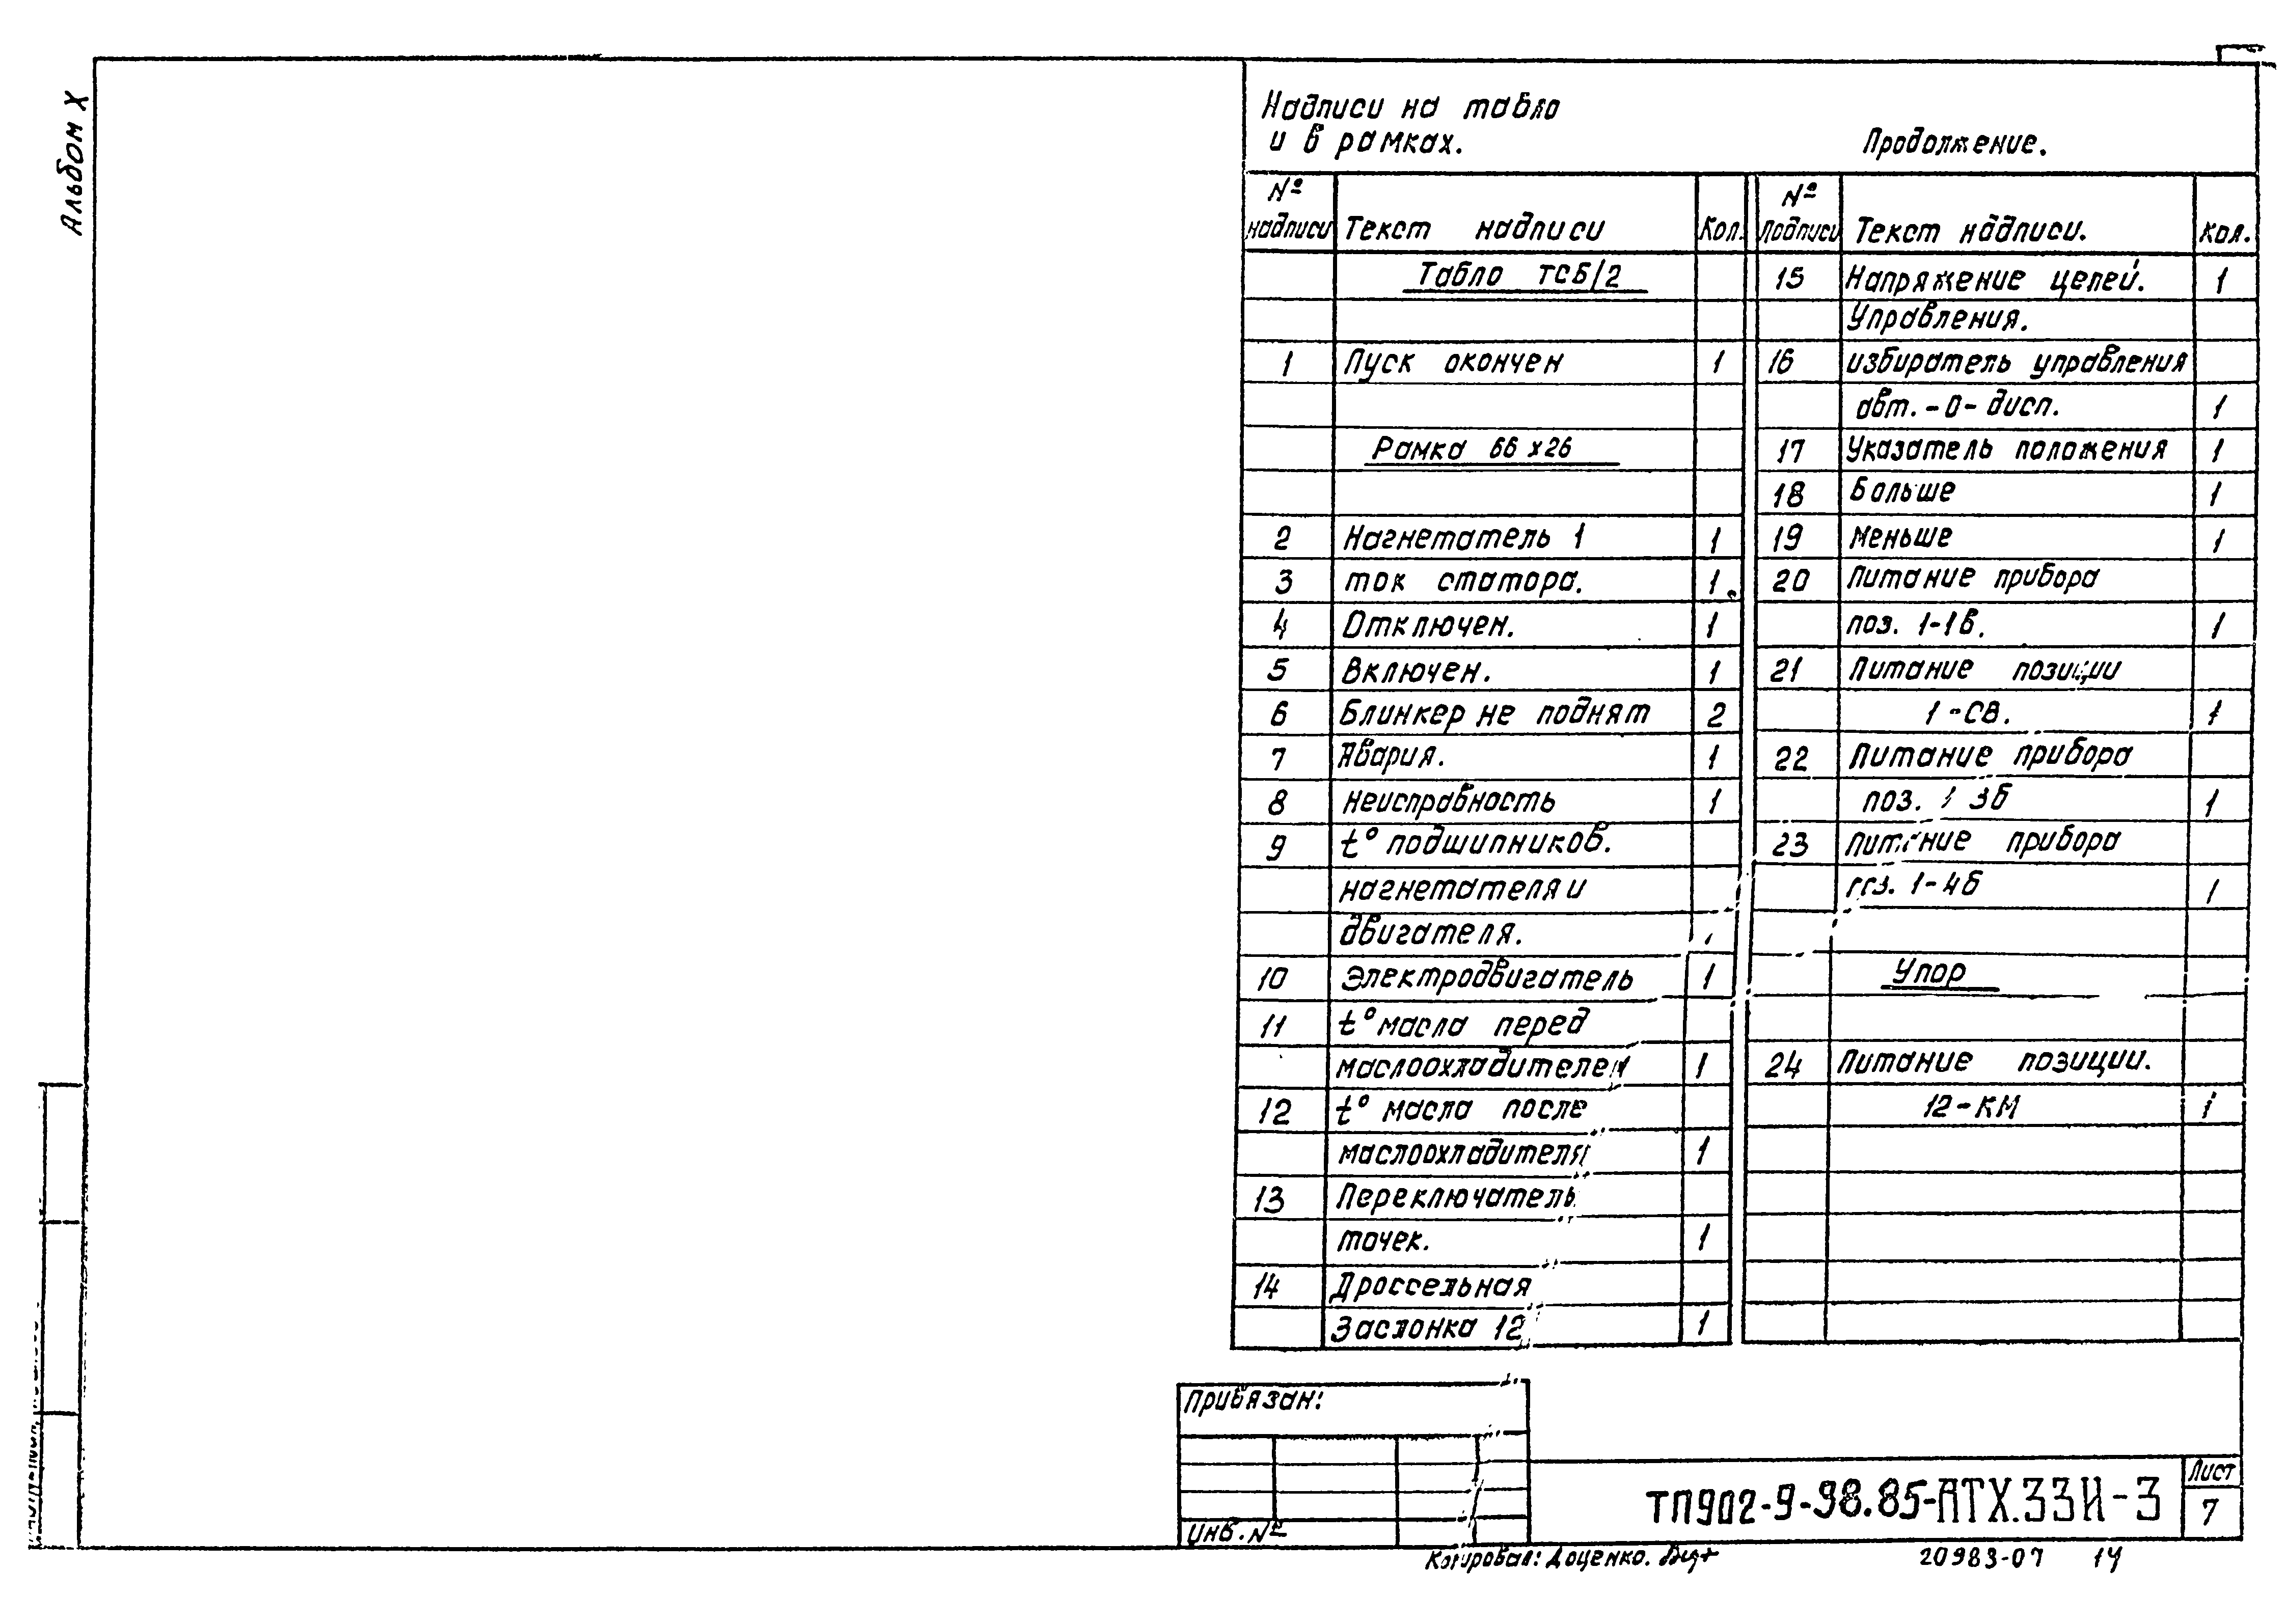 Альбом X
Надписи на табло
и в рамках.
Продолжение.
№ надписи Текст надписи Кол.
Табло ТСБ/2
1 Пуск окончен 1
Рамка 66х26
2 Нагнетатель 1 1
3 ток статора. 1
4 Отключен. 1
5 Включен. 1
6 Блинкер не поднят 2
7 Авария. 1
8 Неисправность 1
9 t° подшипников.
нагнетателя и
двигателя.
10 Электродвигатель 1
11 t° масла перед
маслоохладителем 1
12 t° масла после
маслоохладителя 1
13 Переключатель
точек. 1
14 Дроссельная
Заслонка 12 1
№ подписи Текст надписи. Кол.
15 Напряжение цепей. 1
Управления.
16 избиратель управления
авт.-0-дисп. 1
17 Указатель положения 1
18 Больше 1
19 Меньше 1
20 Питание прибора
поз. 1-1в. 1
21 Питание позиции
1-СВ. 1
22 Питание прибора
поз. 1 3б 1
23 Питание прибора
1-4б 1
Упор
24 Питание позиции.
12-КМ 1
Привязан:
Инв. №
ТП902-9-98.85-АТХ.33И-3
Лист
7
Копировал: Доценко.
20983-07 14